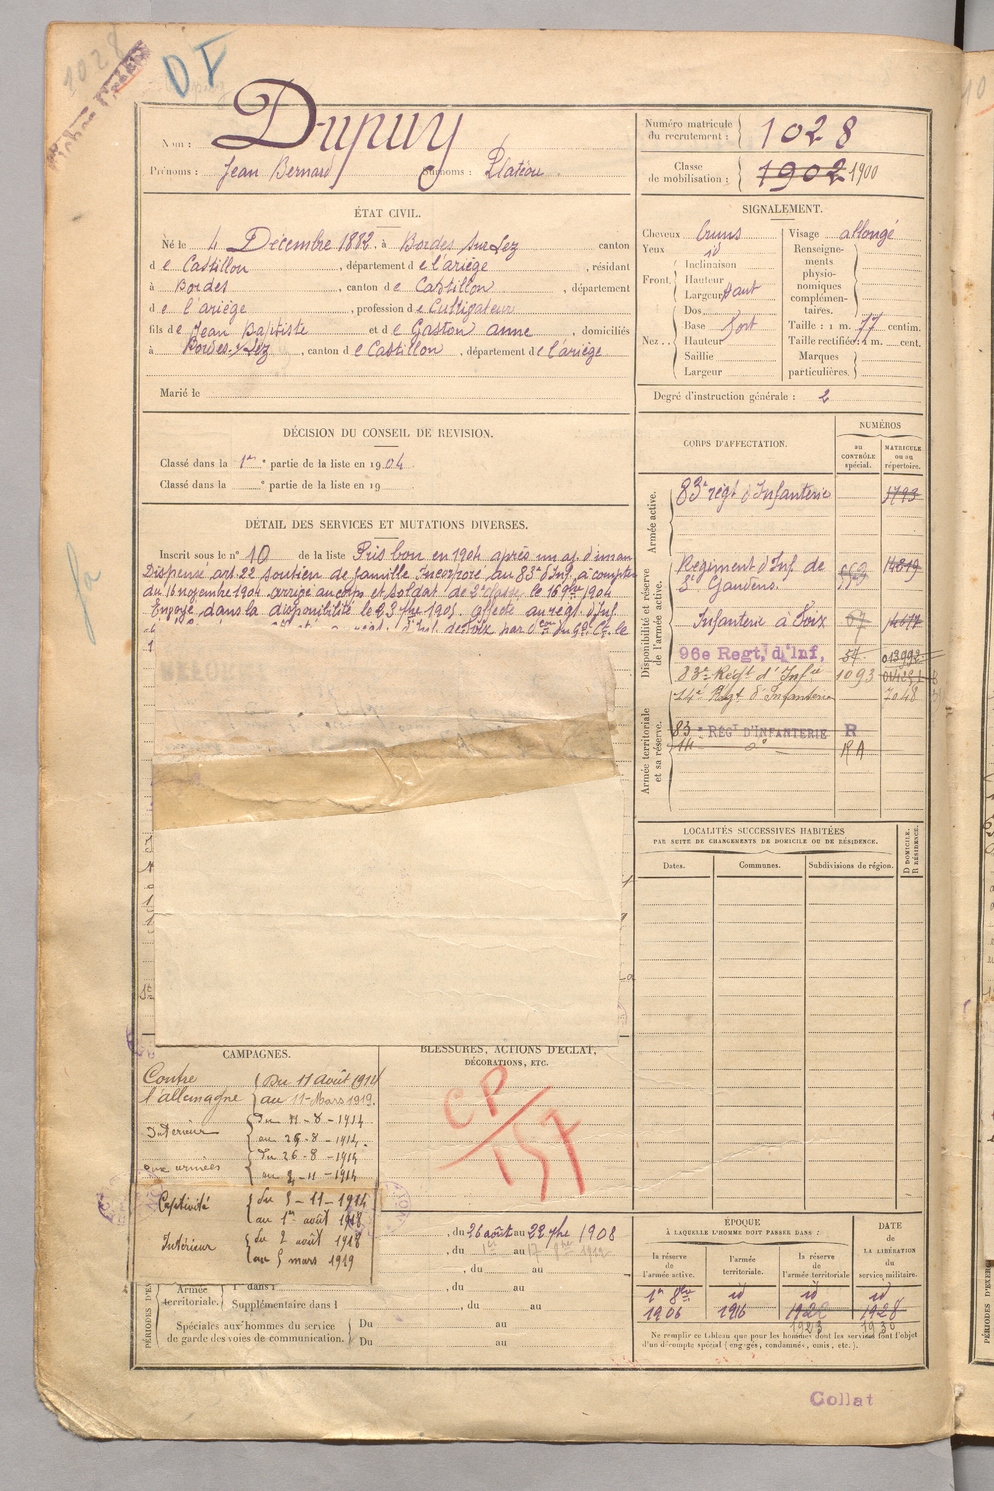 1028
DF
Nom : Dupuy
Prénoms : Jean Bernard Surnoms : Platéou
Numéro matricule du recrutement : 1028
Classe de mobilisation : 1902 1900
ÉTAT CIVIL.
Né le 4 Décembre 1882, à Bordes sur Lez canton
de Castillon, département de l'ariège, résidant
à Bordes, canton de Castillon, département
de l'ariège, profession de Cultivateur
fils de Jean Baptiste et de Gaston anne, domiciliés
à Bordes s/ Lez, canton de Castillon, département de l'ariège
Marié le
SIGNALEMENT.
Cheveux bruns
Yeux id
Front. Inclinaison
Hauteur
Largeur haut
Nez... Dos
Base fort
Hauteur
Saillie
Largeur
Visage allongé
Renseignements physionomiques complémentaires.
Taille : 1 m. 77 centim.
Taille rectifiée: 1 m. cent.
Marques particulières.
Degré d'instruction générale : 2
DÉCISION DU CONSEIL DE REVISION.
Classé dans la 1re partie de la liste en 1904
Classé dans la ° partie de la liste en 19
DÉTAIL DES SERVICES ET MUTATIONS DIVERSES.
Inscrit sous le n° 10 de la liste Pris bon en 1904 après un aj. d'un an
Dispensé art. 22 soutien de famille Incorporé au 83e d'Inf. à compter
du 16 novembre 1904 arrivé au corps et soldat de 2e classe le 16 9bre 1904
Envoyé dans la disponibilité le 23 7bre 1905. affecté au régt. d'Inf
CORPS D'AFFECTATION.
NUMÉROS
au CONTRÔLE spécial.
MATRICULE ou au répertoire.
Armée active.
83e régt d'Infanterie 1793
Disponibilité et réserve de l'armée active.
Régiment d'Inf de St Gaudens. 14819
Infanterie à Foix 67
96e Regt, d'Inf, 54 013992
83e Régt d'Infie 1093
14e Régt d'Infanterie 7048
Armée territoriale et sa réserve.
83e RÉGT D'INFANTERIE R
14 do RA
LOCALITÉS SUCCESSIVES HABITÉES
PAR SUITE DE CHANGEMENTS DE DOMICILE OU DE RÉSIDENCE.
Dates. Communes. Subdivisions de région. D DOMICILE. R RÉSIDENCE.
CAMPAGNES.
Contre l'allemagne Du 11 Août 1914
au 11 Mars 1919.
Intérieur du 11-8-1914
au 25-8-1914.
aux armées du 26-8-1914
au 2-11-1914
Captivité du 3-11-1914
au 1er août 1918
Intérieur du 2 août 1918
au 5 mars 1919
BLESSURES, ACTIONS D'ÉCLAT,
DÉCORATIONS, ETC.
CP/157
, du 26 août au 22 7bre 1908
, du au
, du au
, du au
Armée territoriale. 1° dans l
Supplémentaire dans l , du au
Spéciales aux hommes du service de garde des voies de communication. Du au
Du au
ÉPOQUE
À LAQUELLE L'HOMME DOIT PASSER DANS :
la réserve de l'armée active.
l'armée territoriale.
la réserve de l'armée territoriale
DATE de LA LIBÉRATION du service militaire.
1er 8bre id id id
1906 1916 1922 1928
1923 1930
Ne remplir ce tableau que pour les hommes dont les services font l'objet
d'un décompte spécial (engagés, condamnés, omis, etc.).
Collat